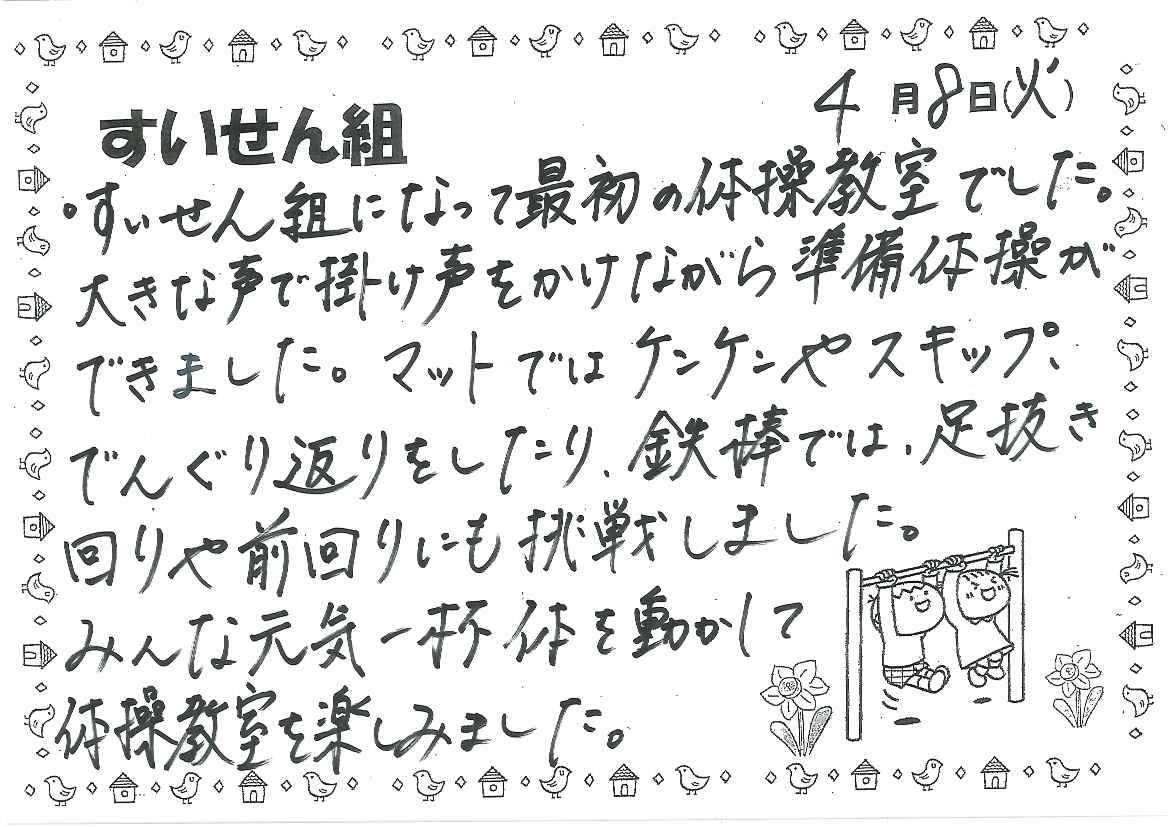 4月8日(火)
すいせん組
・すいせん組になって最初の体操教室でした。
大きな声で掛け声をかけながら準備体操が
できました。マットではケンケンやスキップ、
でんぐり返りをしたり、鉄棒では、足抜き
回りや前回りにも挑戦しました。
みんな元気一杯体を動かして
体操教室を楽しみました。